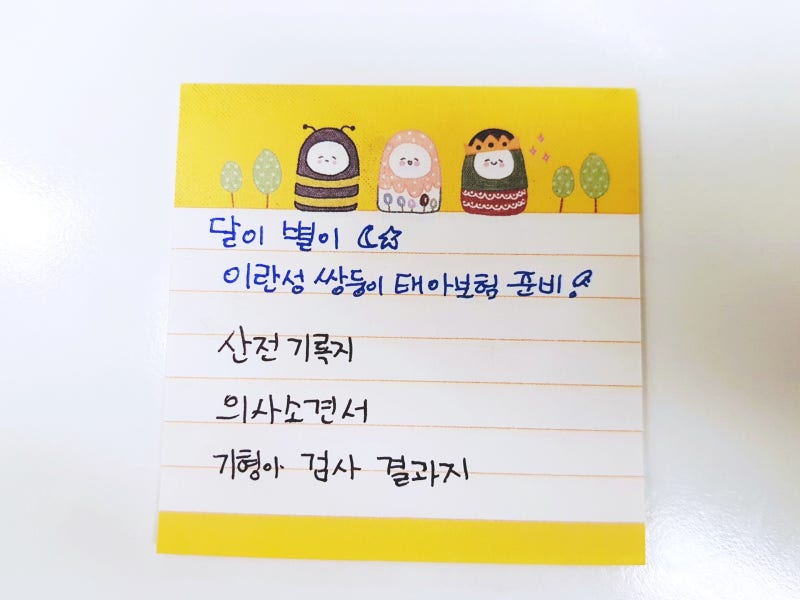 달이 별이 ☾☆
이란성 쌍둥이 태아보험 준비!
산전 기록지
의사소견서
기형아 검사 결과지